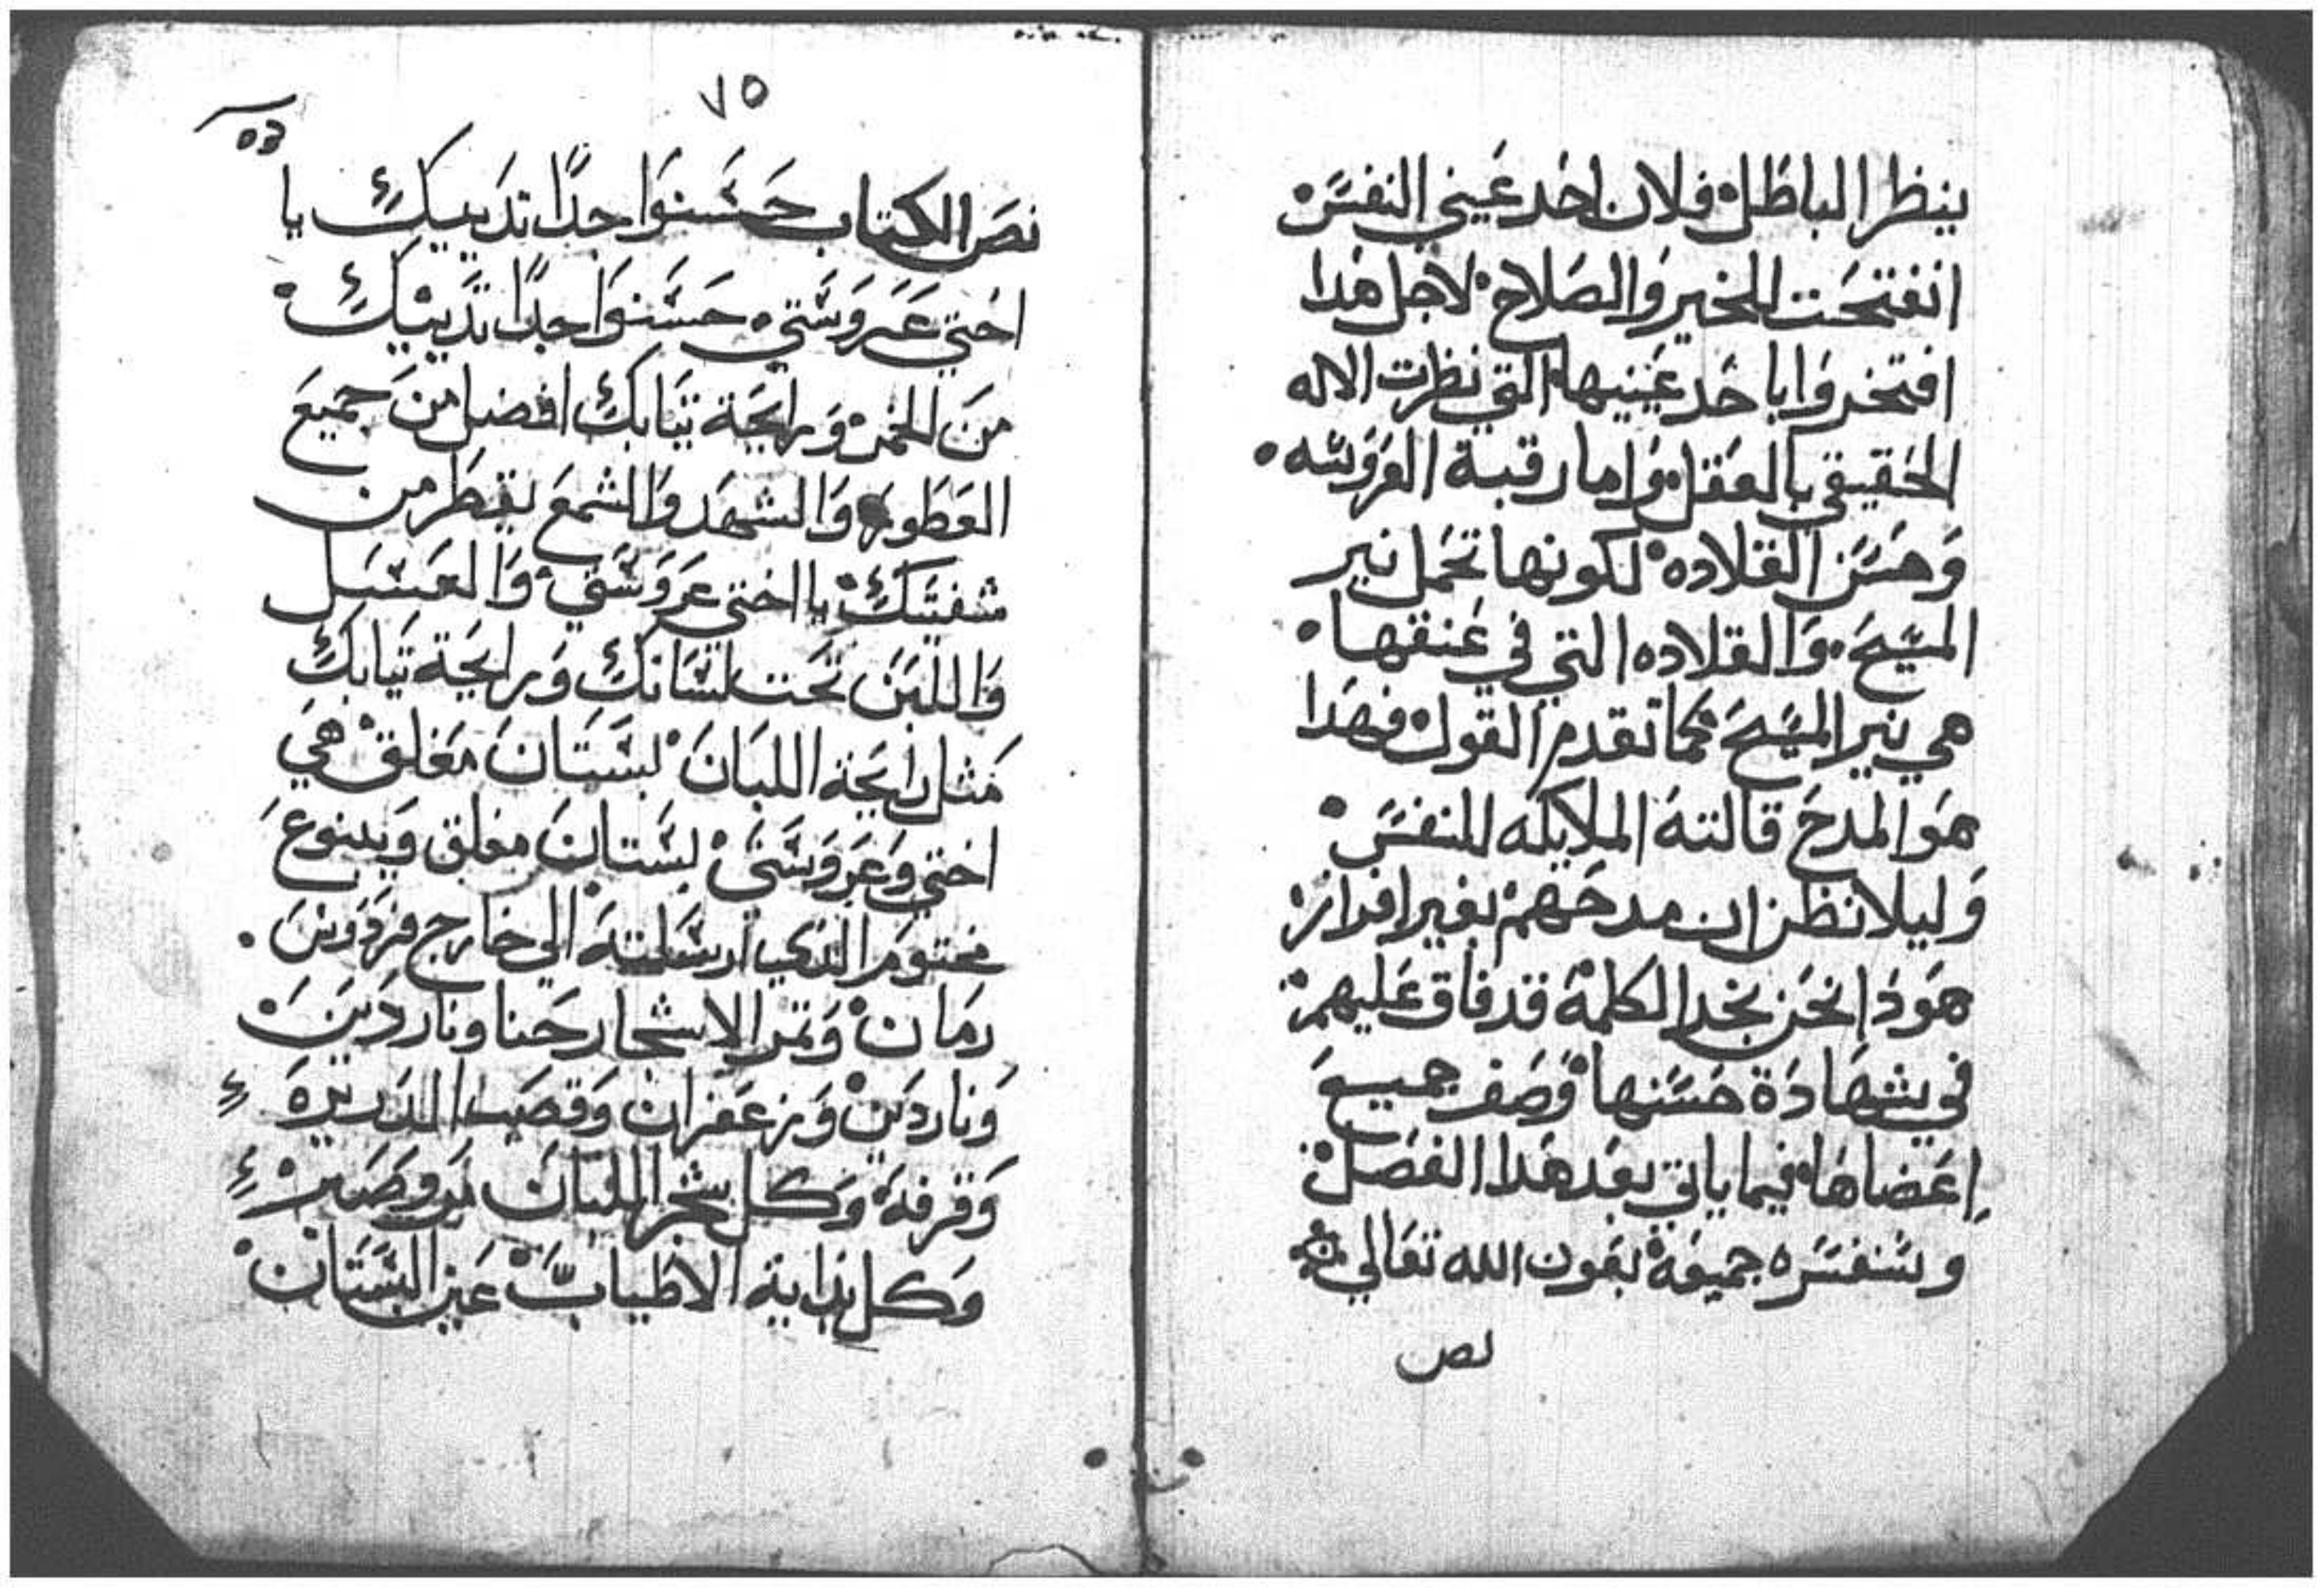 ينظر الباطل فلان احد عيني النفس
انفتحت للخير والصلاح لاجل هدا
افتخروا باحد عينيها التي نظرت الاله
الحقيقي بالعقل واما رقبة العروسه
وحسن القلاده لكونها تحمل نير
المسيح والقلاده التي في عنقها
هي نير المسيح كما تقدم القول فهدا
هو المدح قالته الملايكه للنفس
وليلا نظن ان مدحهم بغير افراز
هودا نحن نجد الكلمة قد فاق عليهم
في شهادة حسنها وصف جميع
اعضاها فيما ياتي بعد هدا الفصل
وسنفسره جميعه بعون الله تعالي
نص
٧٥
نص الكتاب حسنوا جدًا تدييك يا
اختي عروستي حسنوا جدًا تدييك
من الخمر ورايحة تيابك افضل من جميع
العطور والشهد والشمع يقطر من
شفتيك يا اختي عروستي والعسل
واللبن تحت لسانك ورايحة تيابك
مثل رايحة اللبان بستان مغلق هي
اختي وعروستي بستان مغلق وينبوع
مختوم الذي ارسلته الي خارج فردوس
رمان وتمر الاشجار حنا وناردين
وناردين وزعفران وقصب الدريره
وقرفة وكل شجر اللبان مر وصبر
وكل بداية الاطياب عين البستان